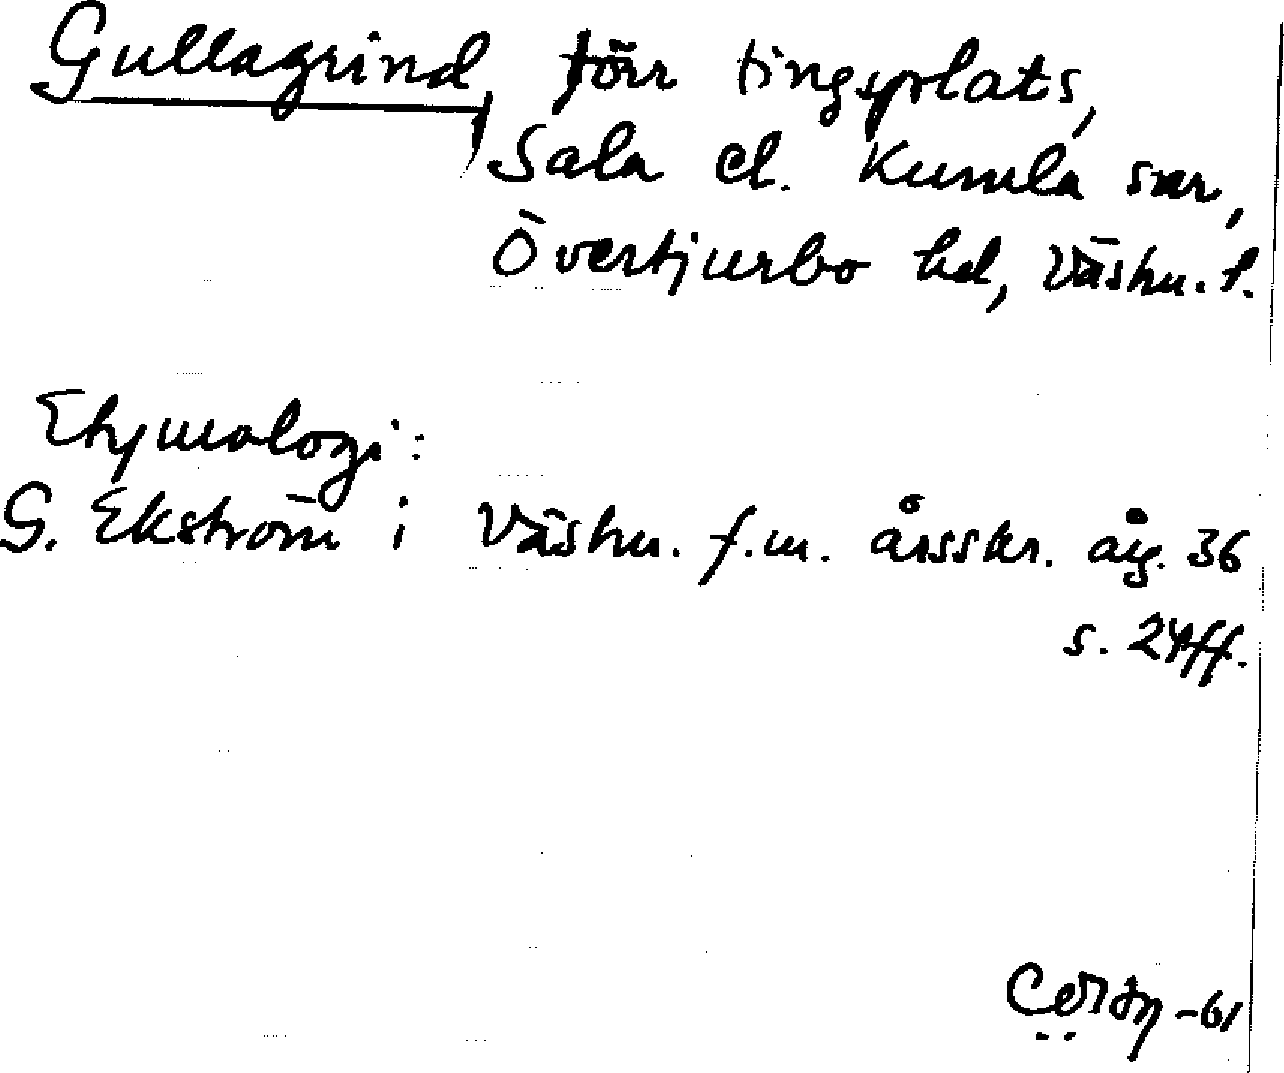 Gullagrind, förr tingsplats,
Sala el. Kumla snr,
Övertjurbo hd, Västm. l.
Etymologi:
G. Ekström i Västm. f.m. årsskr. årg. 36
s. 24ff.
-61